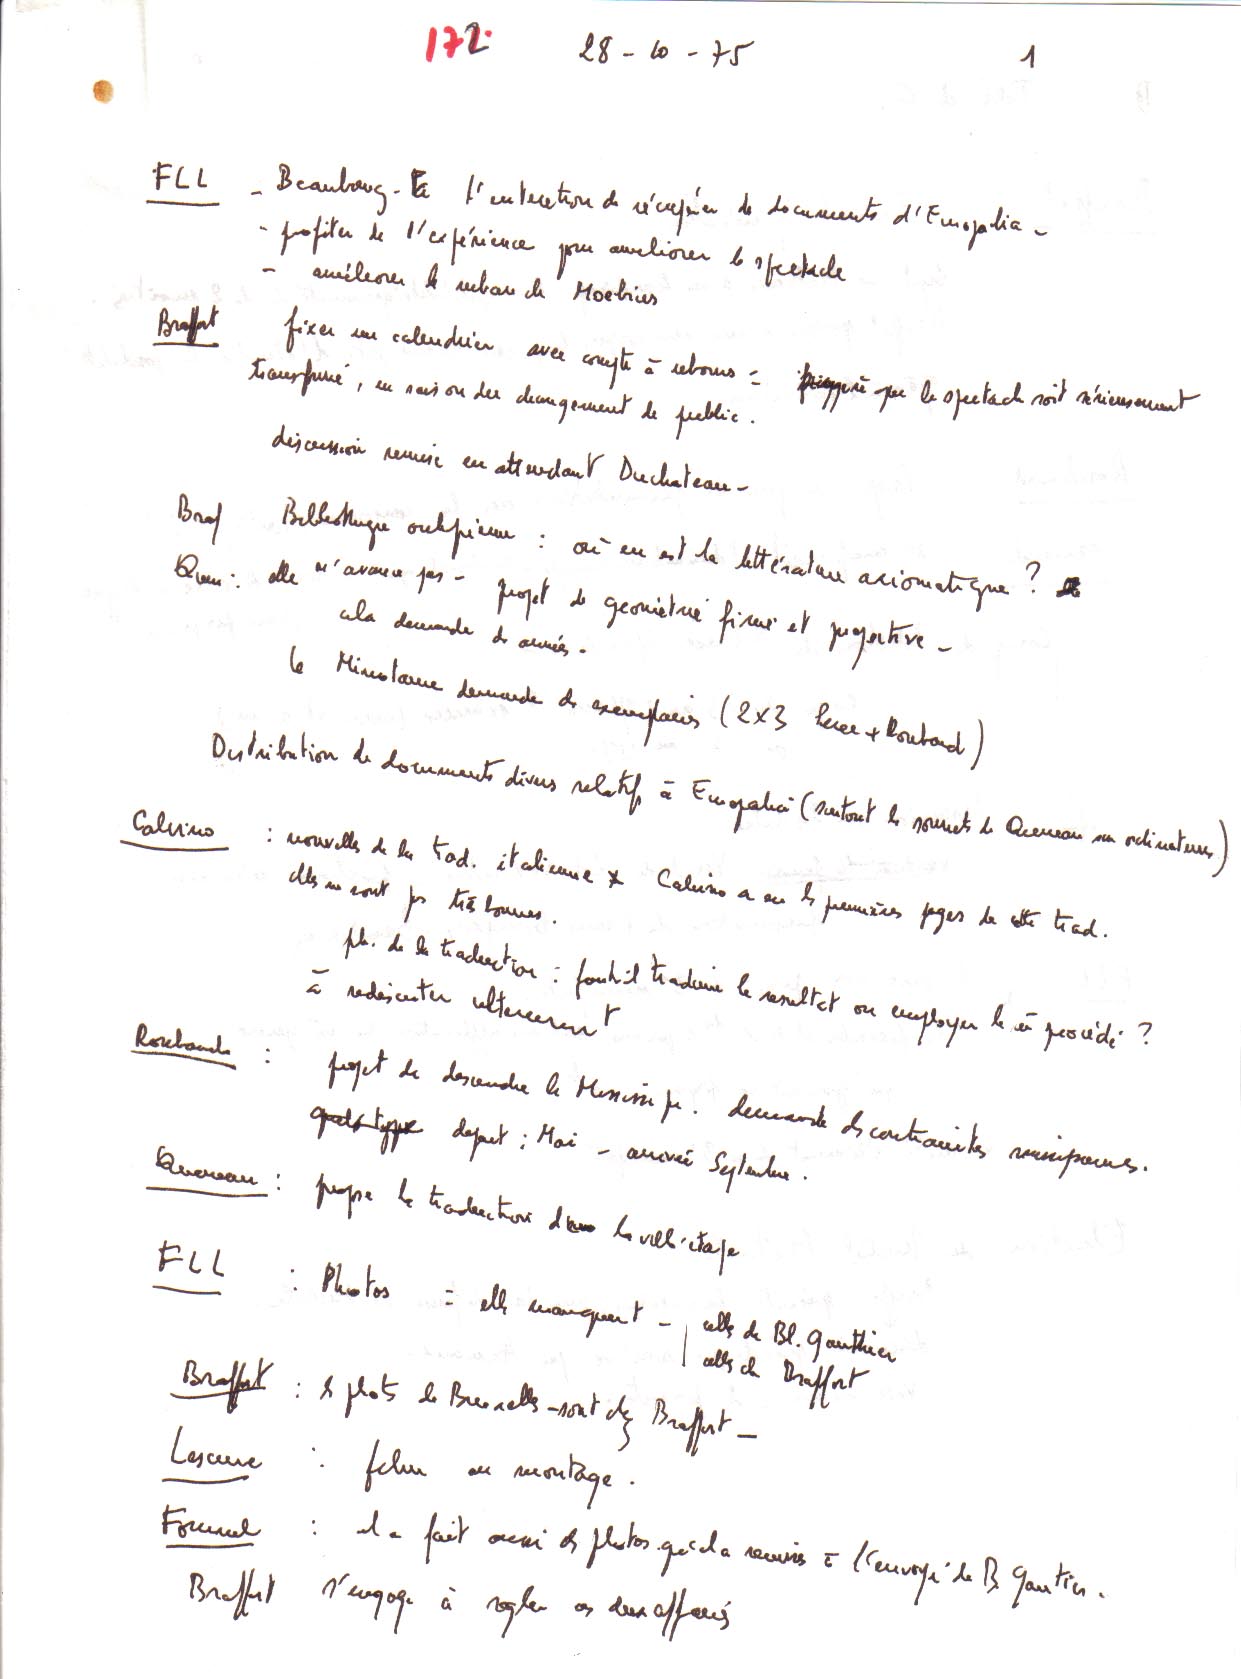 172. 28-10-75 1
FLL - Beaubourg - l'intention de récupérer de documents d'Europalia -
- profiter de l'expérience pour améliorer le spectacle
- améliorer le ruban de Moebius
Braffort fixer un calendrier avec compte à rebours = que le spectacle soit sérieusement
transformé, en raison du changement de public.
discussion remise en attendant Duchateau -
Braf Bibliothèque oulipienne : où en est la littérature axiomatique ?
Quen : elle n'avance pas - projet de géométrie finie et projective -
à la demande de
le Minotaure demande des exemplaires (2x3 Perec + Roubaud)
Distribution de documents divers relatifs à Europalia (surtout les sonnets de Queneau sur ordinateurs)
Calvino : nouvelles de la trad. italienne * Calvino a vu les premières pages de cette trad.
elles ne sont pas très bonnes.
pb. de la traduction : faut-il traduire le résultat ou employer le m̂ procédé ?
à rediscuter ultérieurement
Roubaud : projet de descendre le Mississipi. demande des contraintes
départ : Mai - arrivée Septembre.
Queneau : propose la traduction la ville-étape
FLL : Photos = elles manquent - celles de Bl. Gauthier
celles de Braffort
Braffort : les photos de Bruxelles - sont chez Braffort -
Lescure : film au montage.
Fournel : il a fait aussi des photos qu'il a remises à l'envoyé de B. Gautier.
Braffort s'engage à régler ces deux affaires